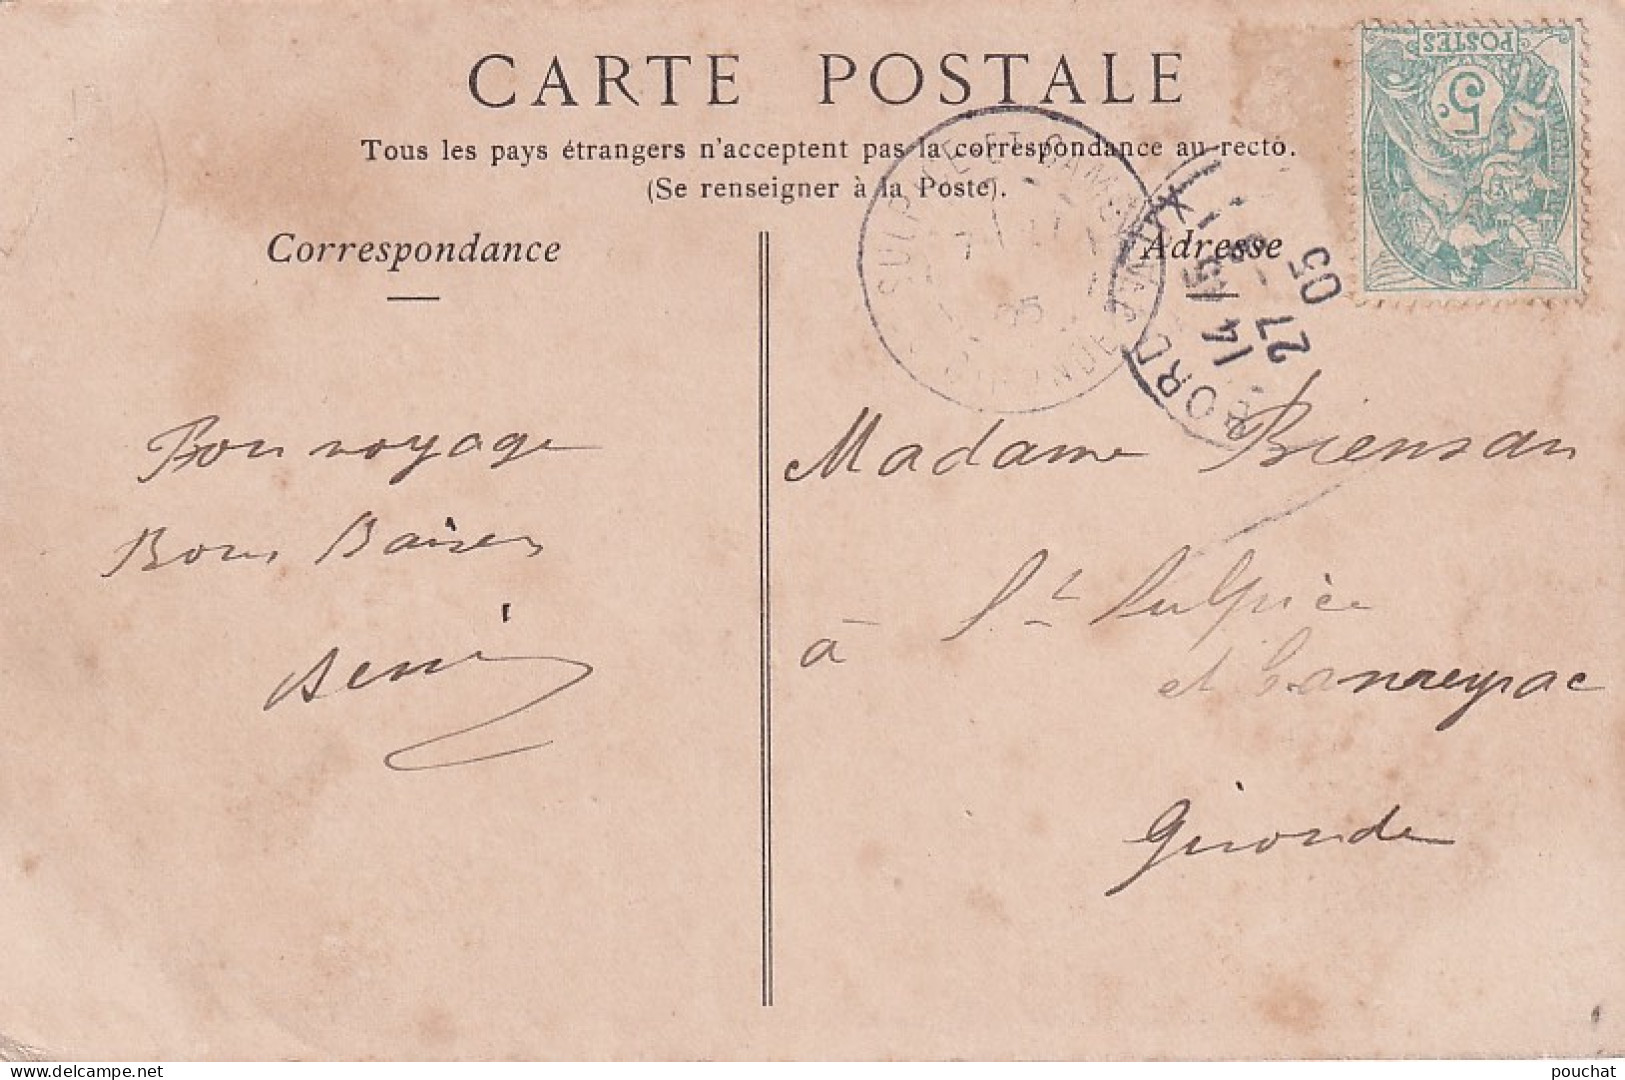 CARTE POSTALE
Tous les pays étrangers n'acceptent pas la correspondance au recto.
(Se renseigner à la Poste).
Correspondance
Adresse
POSTES
5c
BORDEAUX
14 15
27
05
GIRONDE
Bon voyage
Bons Baisers
Madame Biensan
à St Sulpice
et Cameyrac
Gironde
delcampe.net
pouchat